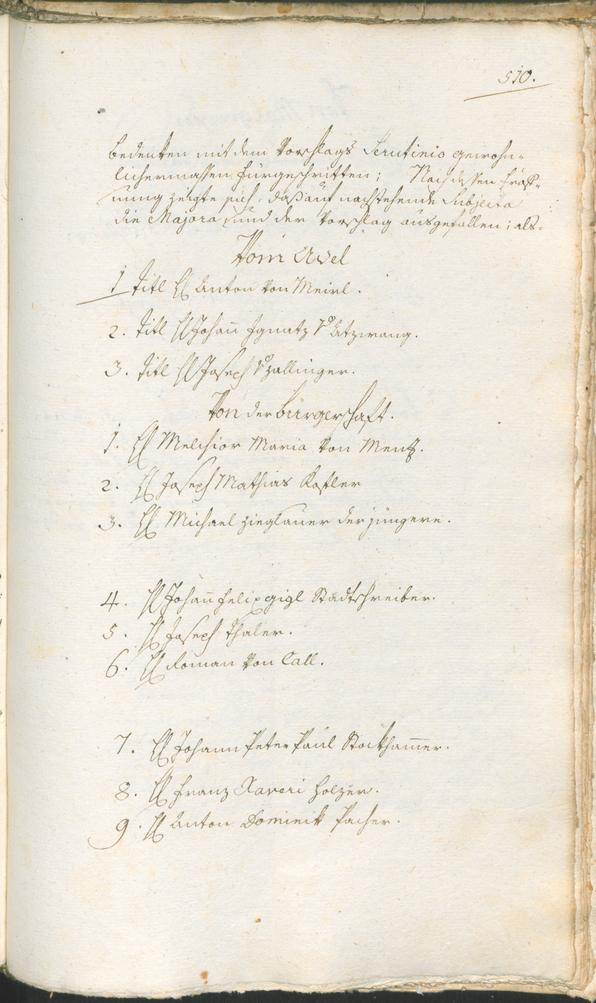 510.
bedeuten mit dem Vorschlags Scrutinio gewohn-
lichermassen fürgeschritten; Nach dessen Eröff-
nung zeigte sich, daß auf nachstehende Subjecta
die Majora, und der Vorschlag ausgefallen; als.
Vom Adel
1 Titl H Anton von Meirl.
2. Titl H Johann Ignatz V Atzwang.
3. Titl H Joseph V Zallinger.
Von der Burgerschaft.
1. H Melchior Maria von Mentz.
2. H Joseph Mathias Kofler
3. H Michael Zieglauer der jüngere.
4. H Johann Felix Gigl Stadtschreiber.
5. H Joseph Thaler.
6. H Roman von Call.
7. H Johann Peter Paul Stockhammer.
8. H Franz Xaveri Holzer.
9. H Anton Dominik Pacher.